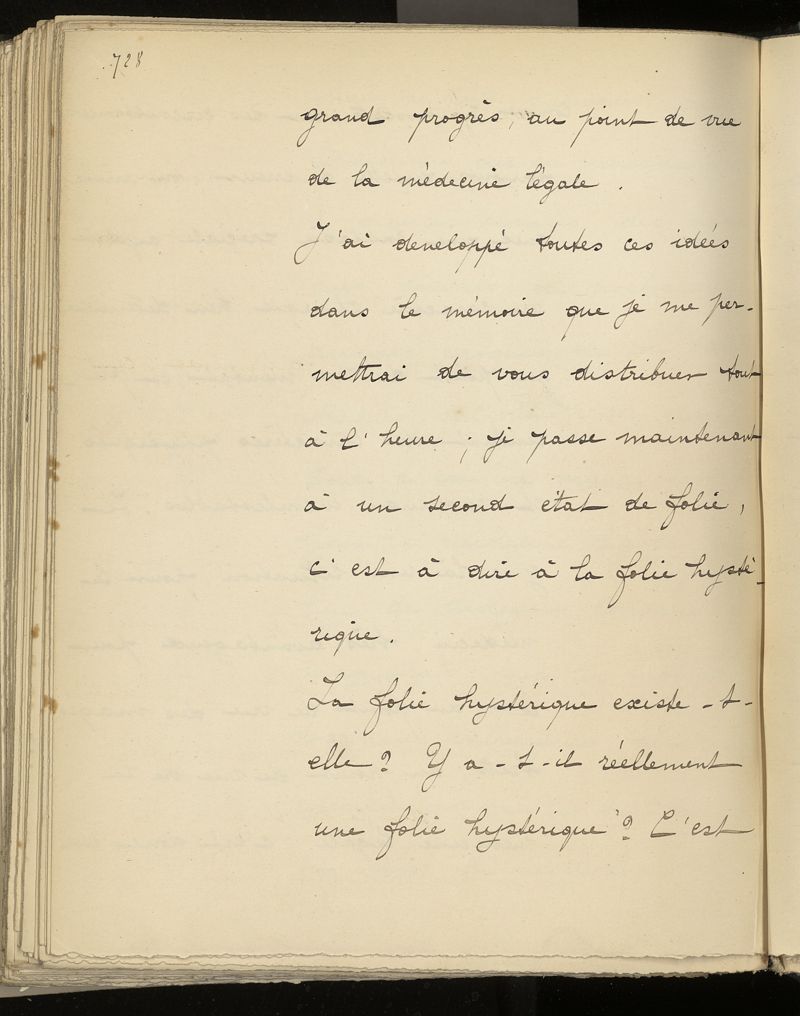 728
grand progrès, au point de vue
de la médecine légale.
J'ai developpé toutes ces idées
dans le mémoire que je me per-
mettrai de vous distribuer tout
à l'heure ; je passe maintenant
à un second état de folie,
c'est à dire à la folie hysté-
rique.
La folie hystérique existe-t-
elle ? Y a-t-il réellement
une folie hystérique ? C'est